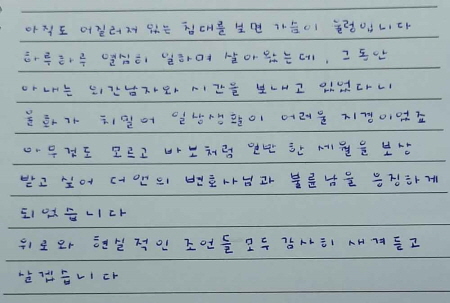 아직도 어질러져 있는 침대를 보면 가슴이 철렁입니다
하루하루 열심히 일하며 살아왔는데, 그동안
아내는 외간남자와 시간을 보내고 있었다니
울화가 치밀어 일상생활이 어려울 지경이었죠
아무것도 모르고 바보처럼 연반 한 세월을 보상
받고 싶어 더앤의 변호사님과 불륜남을 응징하게
되었습니다
위로와 현실적인 조언들 모두 감사히 새겨듣고
살겠습니다